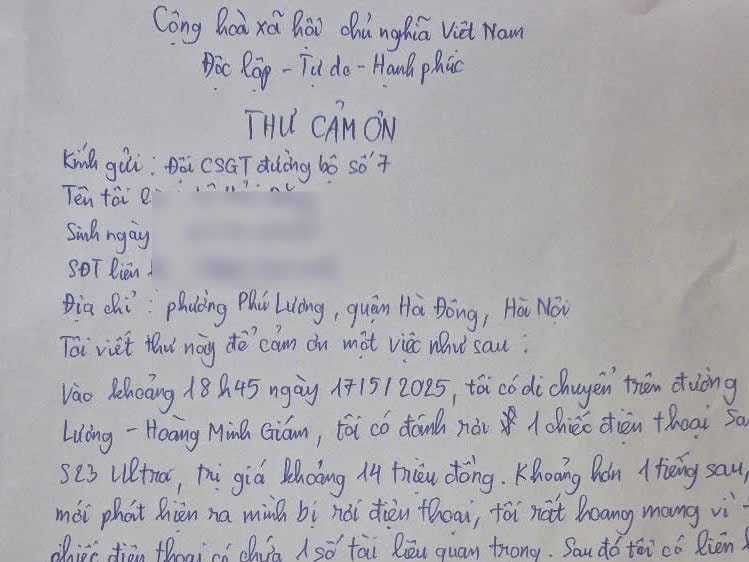 Cộng hoà xã hội chủ nghĩa Việt Nam
Độc lập - Tự do - Hạnh phúc
THƯ CẢM ƠN
Kính gửi : Đội CSGT đường bộ số 7
Tên tôi
Sinh ngày
SĐT liên
Địa chỉ : phường Phú Lương, quận Hà Đông, Hà Nội
Tôi viết thư này để cảm ơn một việc như sau :
Vào khoảng 18h45 ngày 17/5/2025, tôi có di chuyển trên đường
Lương - Hoàng Minh Giám, tôi có đánh rơi 1 chiếc điện thoại Sa
S23 Ultra, trị giá khoảng 14 triệu đồng. Khoảng hơn 1 tiếng sau,
mới phát hiện ra mình bị rơi điện thoại, tôi rất hoang mang vì
chiếc điện thoại có chứa 1 số tài liệu quan trọng. Sau đó tôi có liên